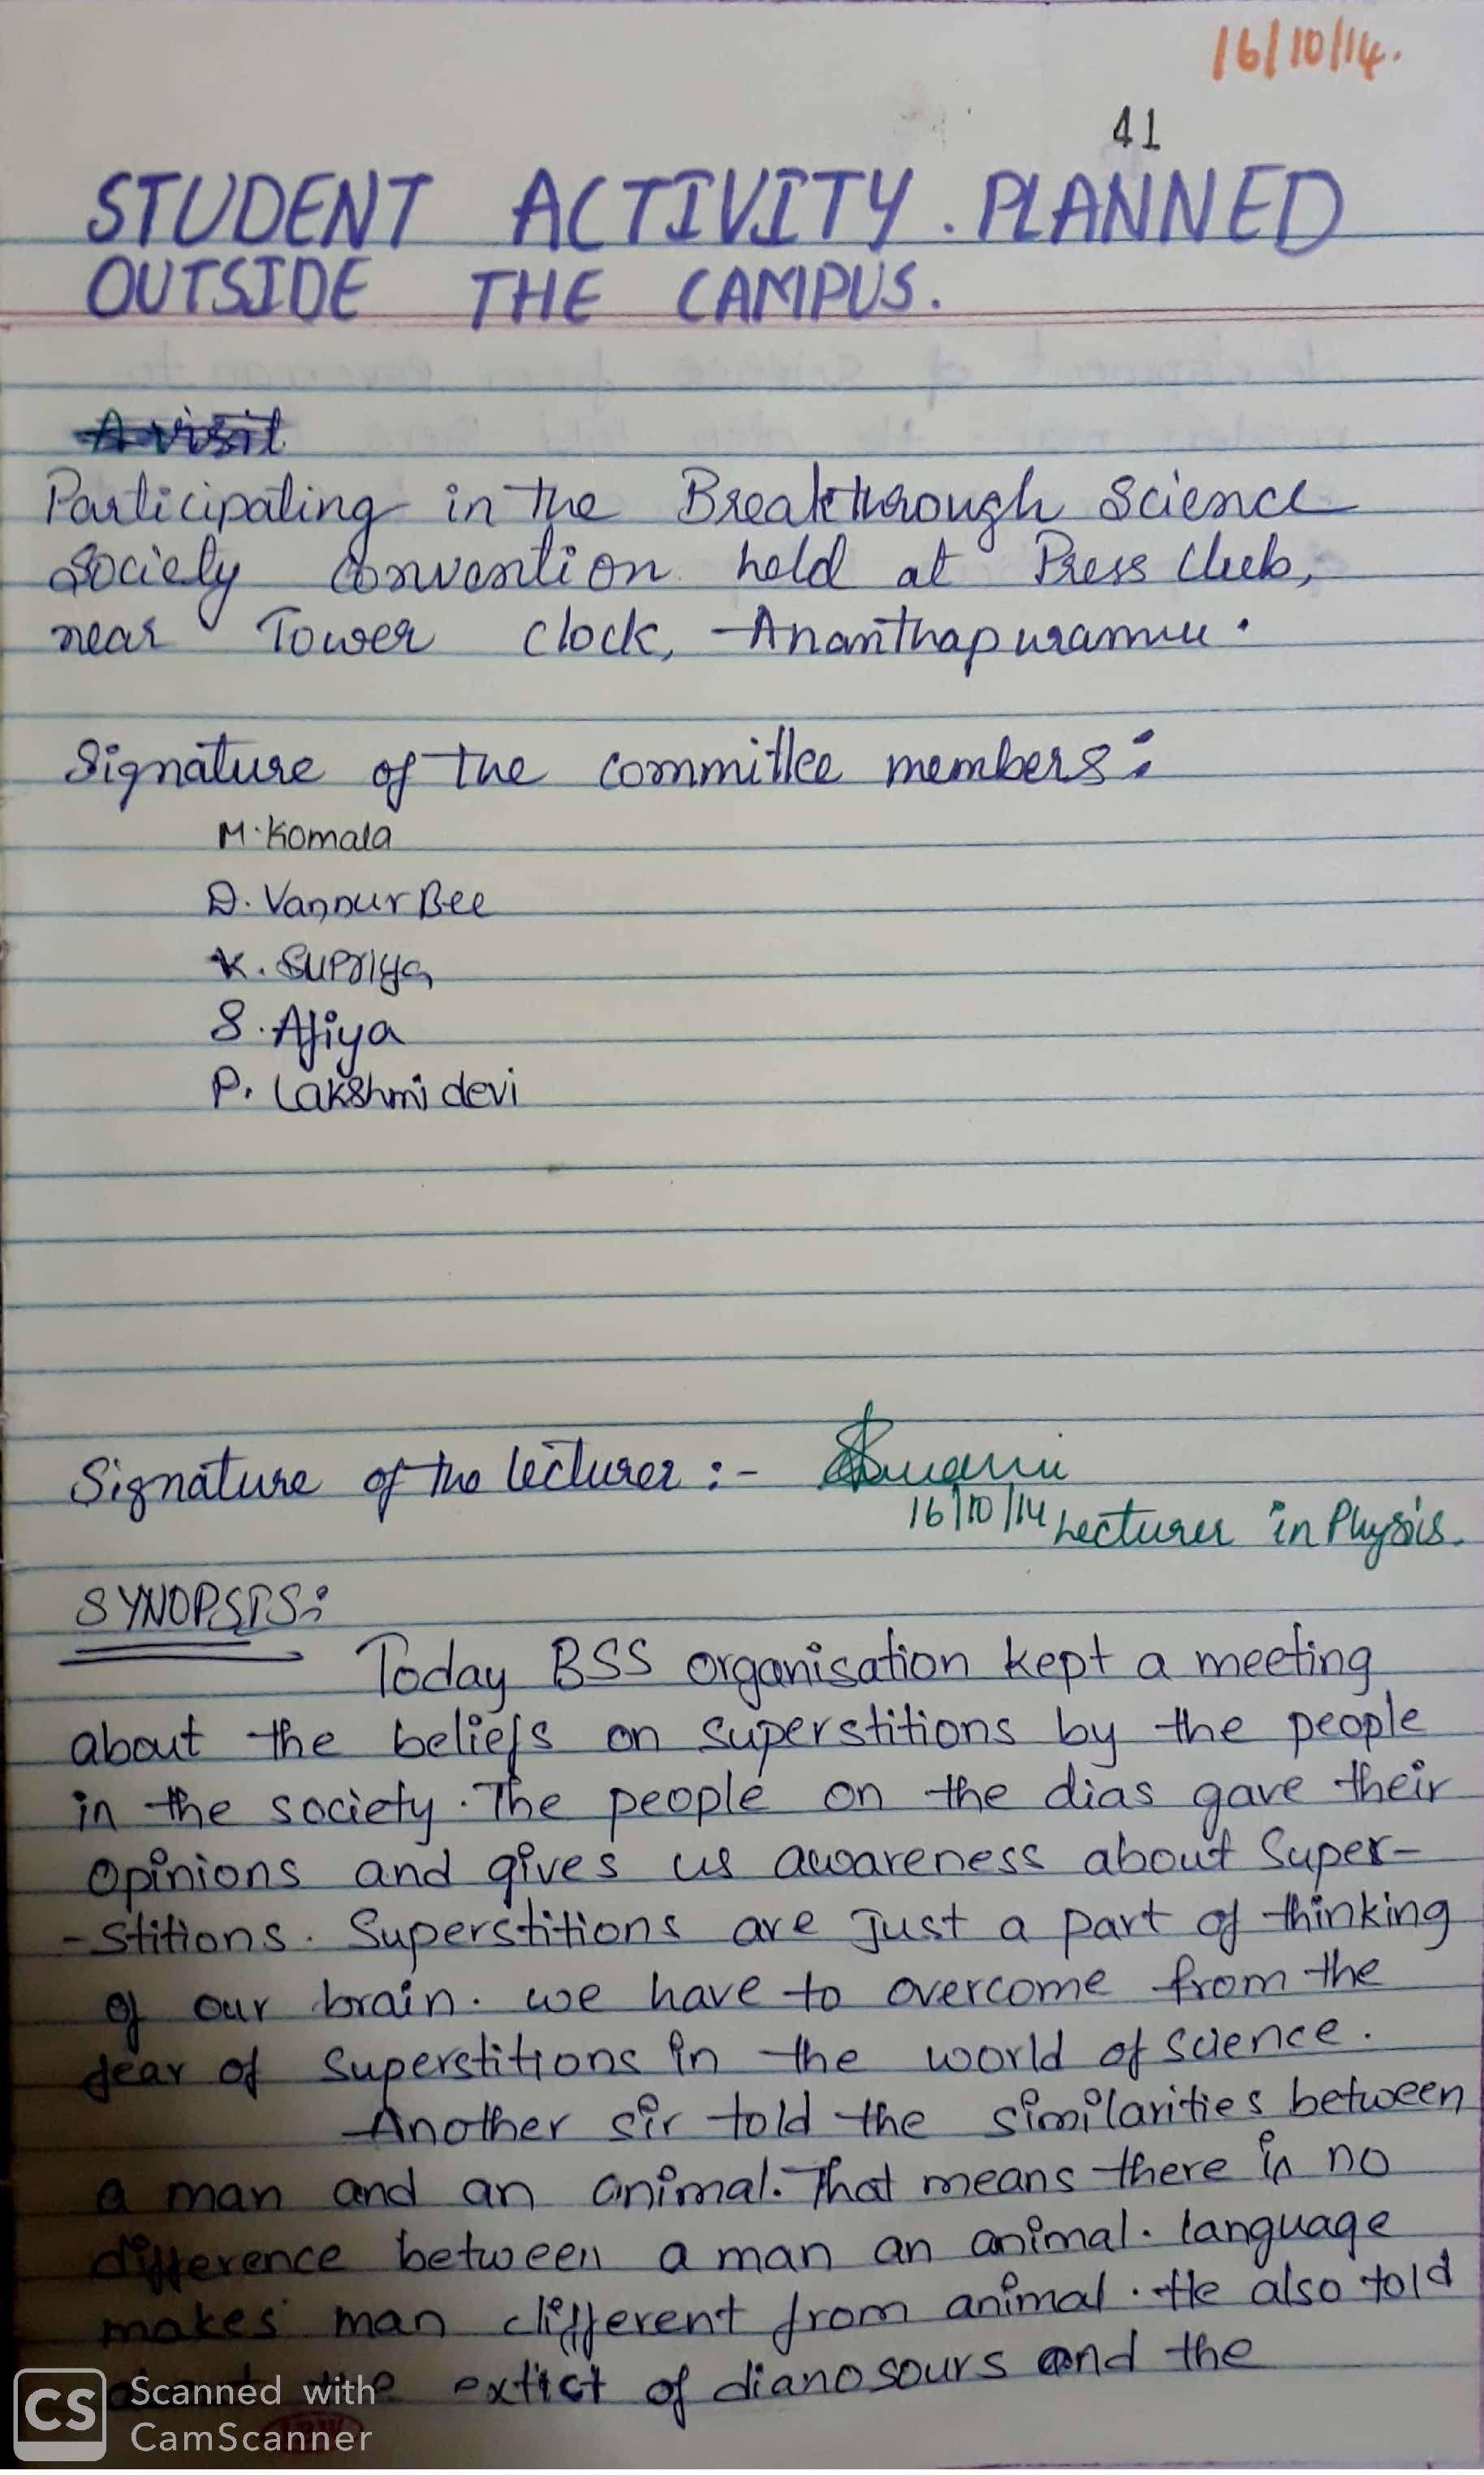 16/10/14.
41
STUDENT ACTIVITY. PLANNED
OUTSIDE THE CAMPUS.
A visit
Participating in the Breakthrough Science
Society Convention held at Press Club,
near Tower Clock, Ananthapuramu.
Signature of the committee members:
M. Komala
D. Vannur Bee
K. Supriya
S. Afiya
P. Lakshmi devi
Signature of the lecturer :-
16/10/14 Lecturer in Physis.
SYNOPSIS:
Today BSS organisation kept a meeting
about the beliefs on superstitions by the people
in the society. The people on the dias gave their
opinions and gives us awareness about Super-
-stitions. Superstitions are just a part of thinking
of our brain. we have to overcome from the
fear of superstitions in the world of science.
Another sir told the similarities between
a man and an animal. That means there is no
difference between a man an animal. language
makes man different from animal. He also told
extict of dianosours and the
CS Scanned with
CamScanner